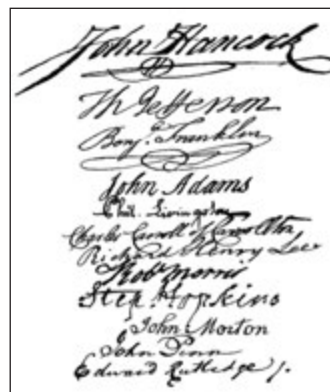 John Hancock
Th Jefferson
Benj. Franklin
John Adams
Phil. Livingston
Charles Carroll of Carrollton
Richard Henry Lee
Rob Morris
Step. Hopkins
John Morton
John Penn
Edward Rutledge